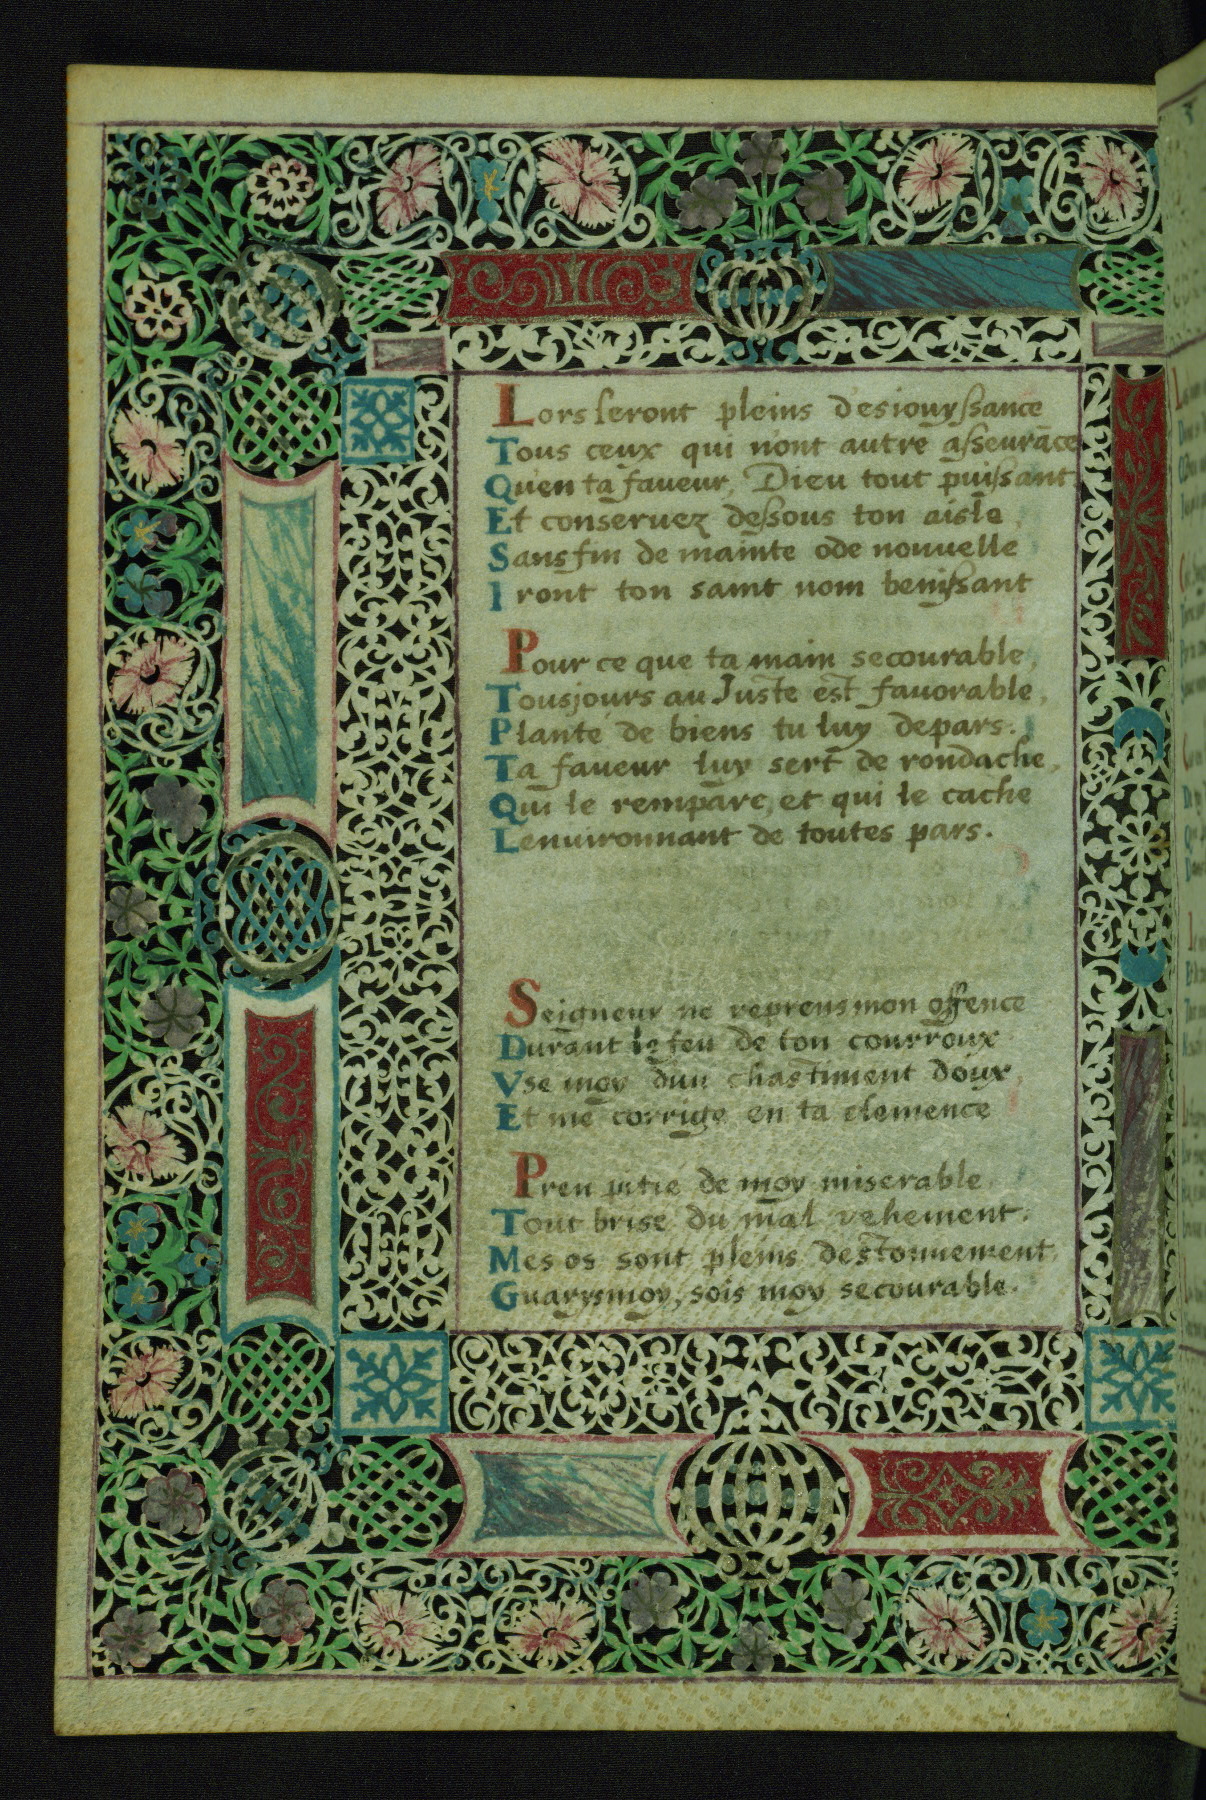 Lors seront pleins d'esiouyssance
Tous ceux qui n'ont autre asseurāce
Qu'en ta faueur, Dieu tout puissant
Et conseruez dessous ton aisle,
Sans fin de mainte ode nouuelle
Iront ton saint nom benissant
Pour ce que ta main secourable,
Tousjours au Juste est fauorable,
Planté de biens tu luy depars.
Ta faueur luy sert de rondache,
Qui le rempare, et qui le cache
Lenuironnant de toutes pars.
Seigneur ne reprens mon offence
Durant le feu de ton courroux
Vse moy dun chastiment doux,
Et me corrige en ta clemence
Pren pitié de moy miserable
Tout brisé du mal vehement.
Mes os sont pleins destonnement
Guarys moy, sois moy secourable.